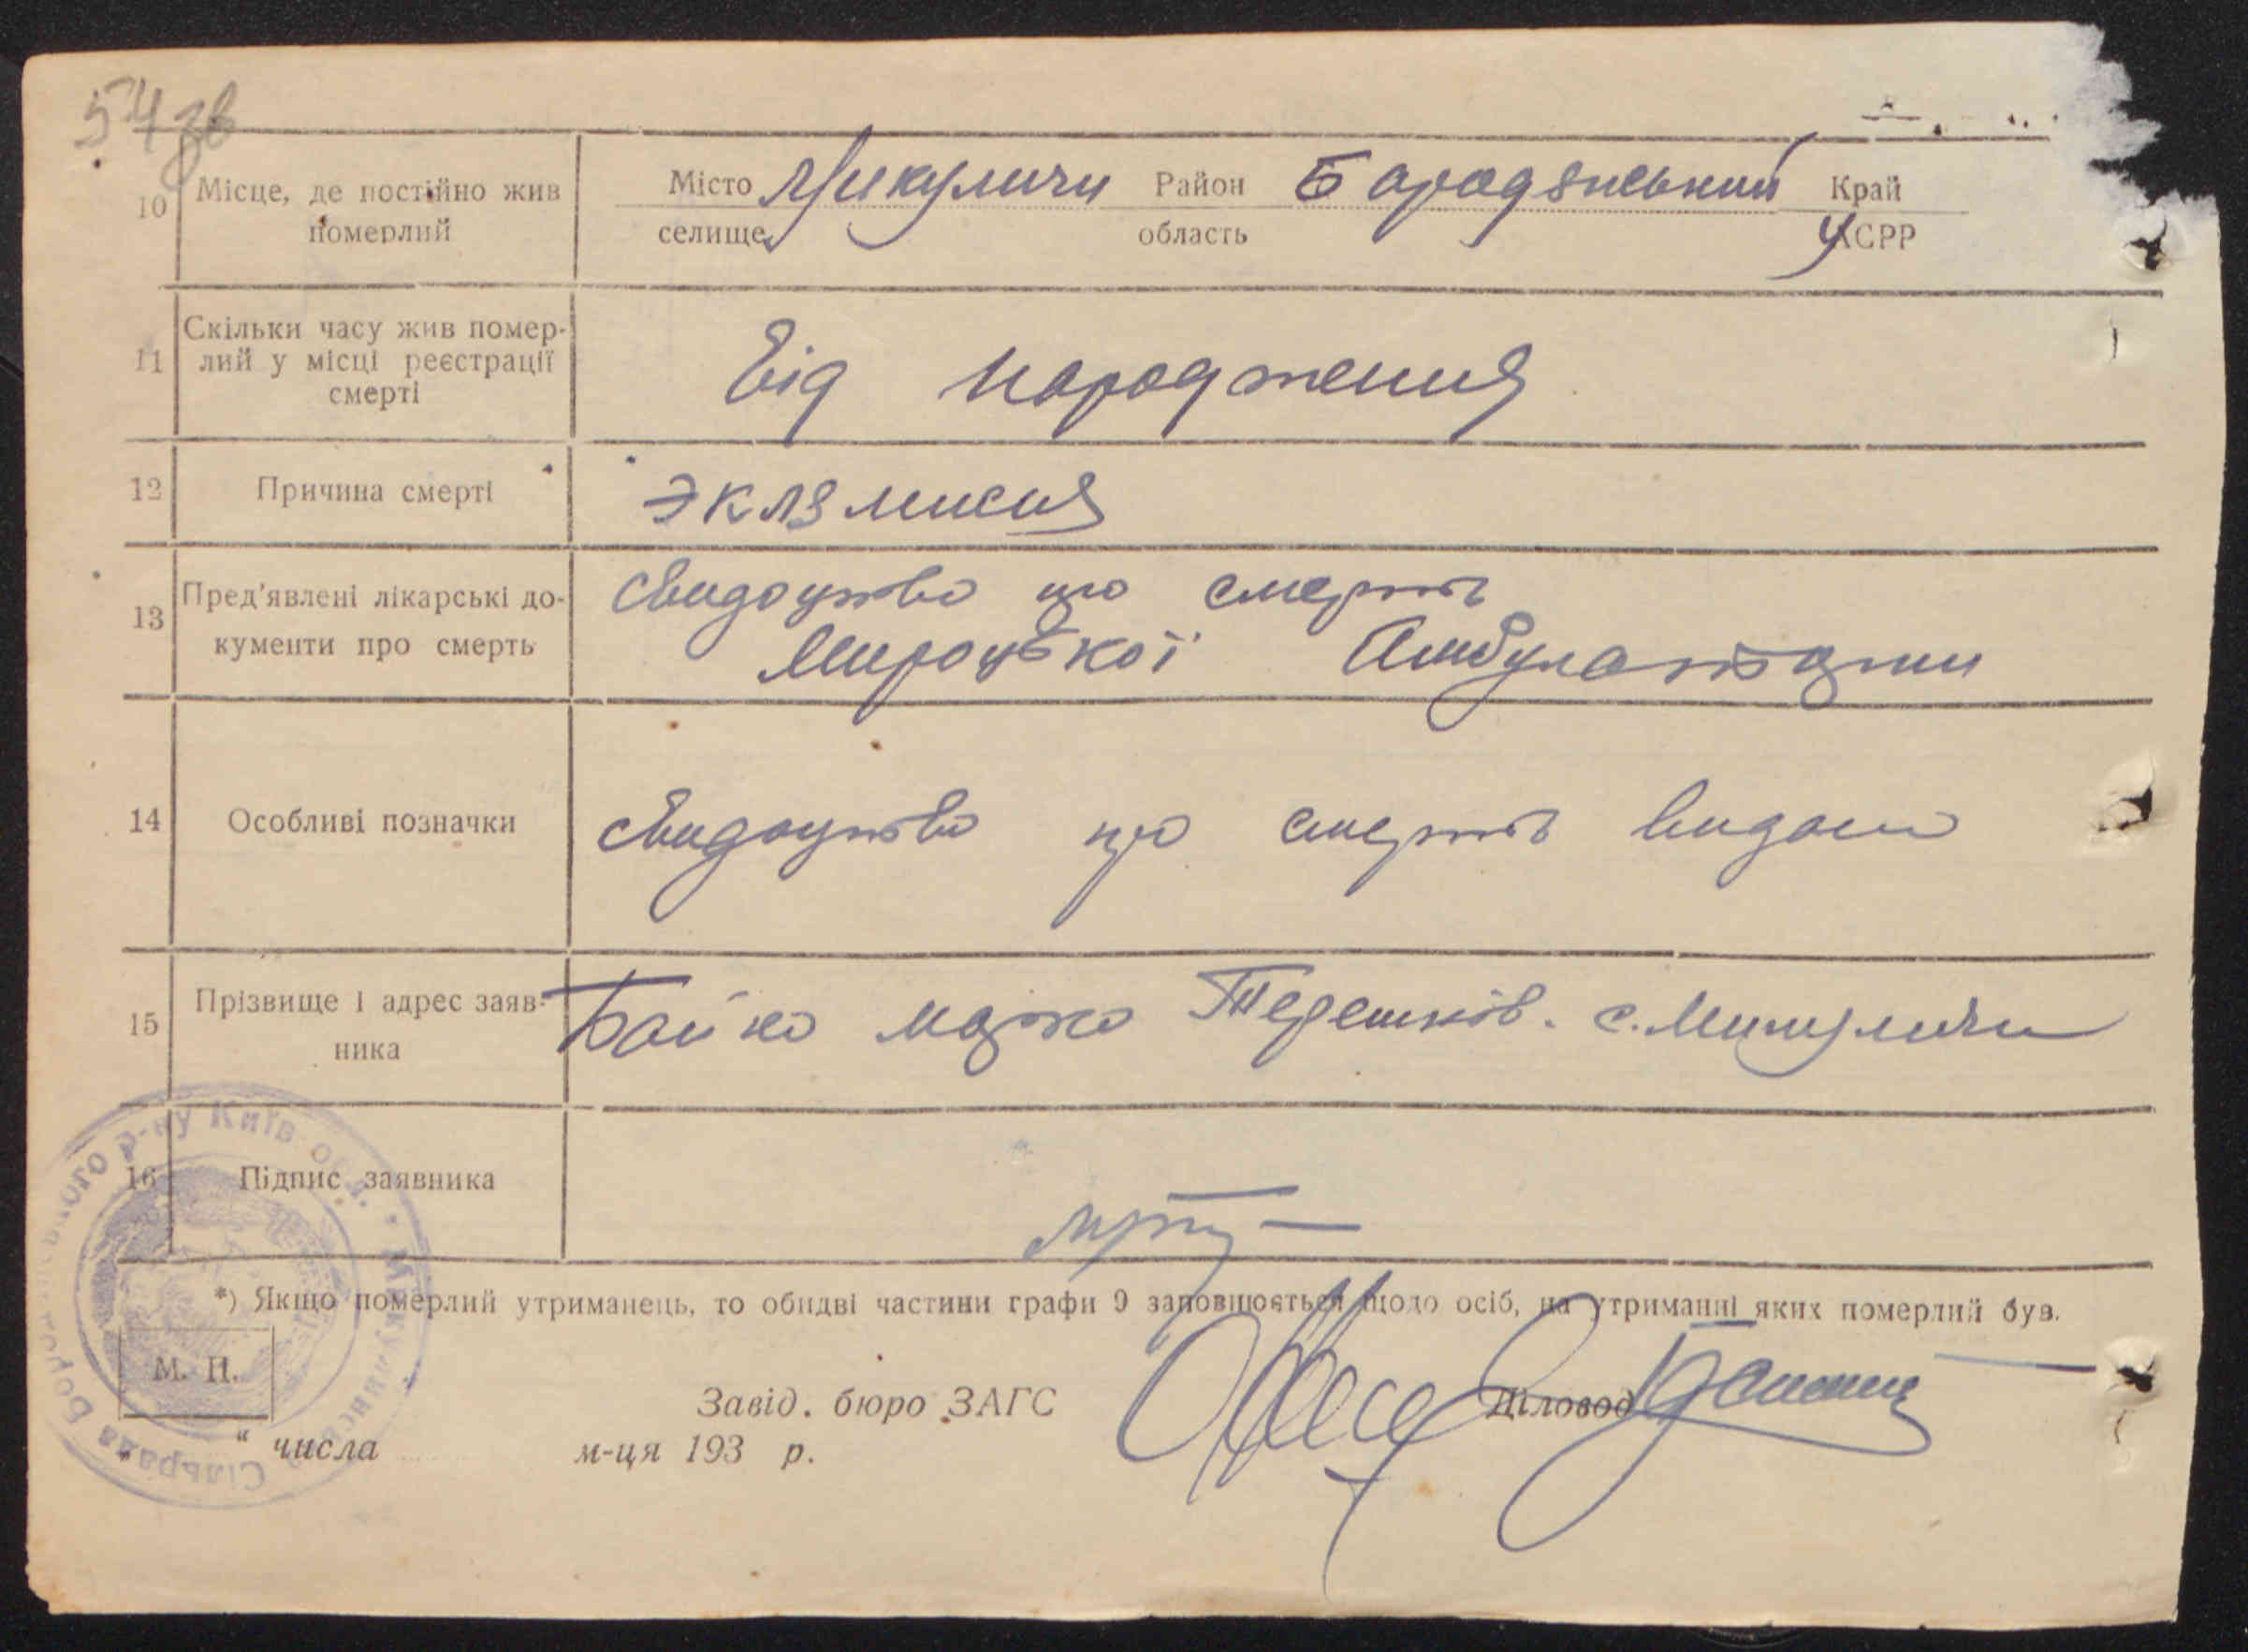 54 зв
10 Місце, де постійно жив померлий
Місто Микуличи Район Бородянський Край
селище область УСРР
11 Скільки часу жив помер-
лий у місці реєстрації
смерті
Від народження
12 Причина смерті
Эклямисия
13 Пред'явлені лікарські до-
кументи про смерть
свидоцтво про смерть
Мироцької Амбулатории
14 Особливі позначки
свидоцтво про смерть видано
15 Прізвище і адрес заяв-
ника
Бойко марко Терешків. с. Микуличи
16 Підпис заявника
*) Якщо померлий утриманець, то обидві частини графи 9 заповнюється щодо осіб, на утриманні яких померлий був.
М. П.
Завід. бюро ЗАГС
Діловод
" числа м-ця 193 р.
Сільрада Бородянського р-ну Київ обл.